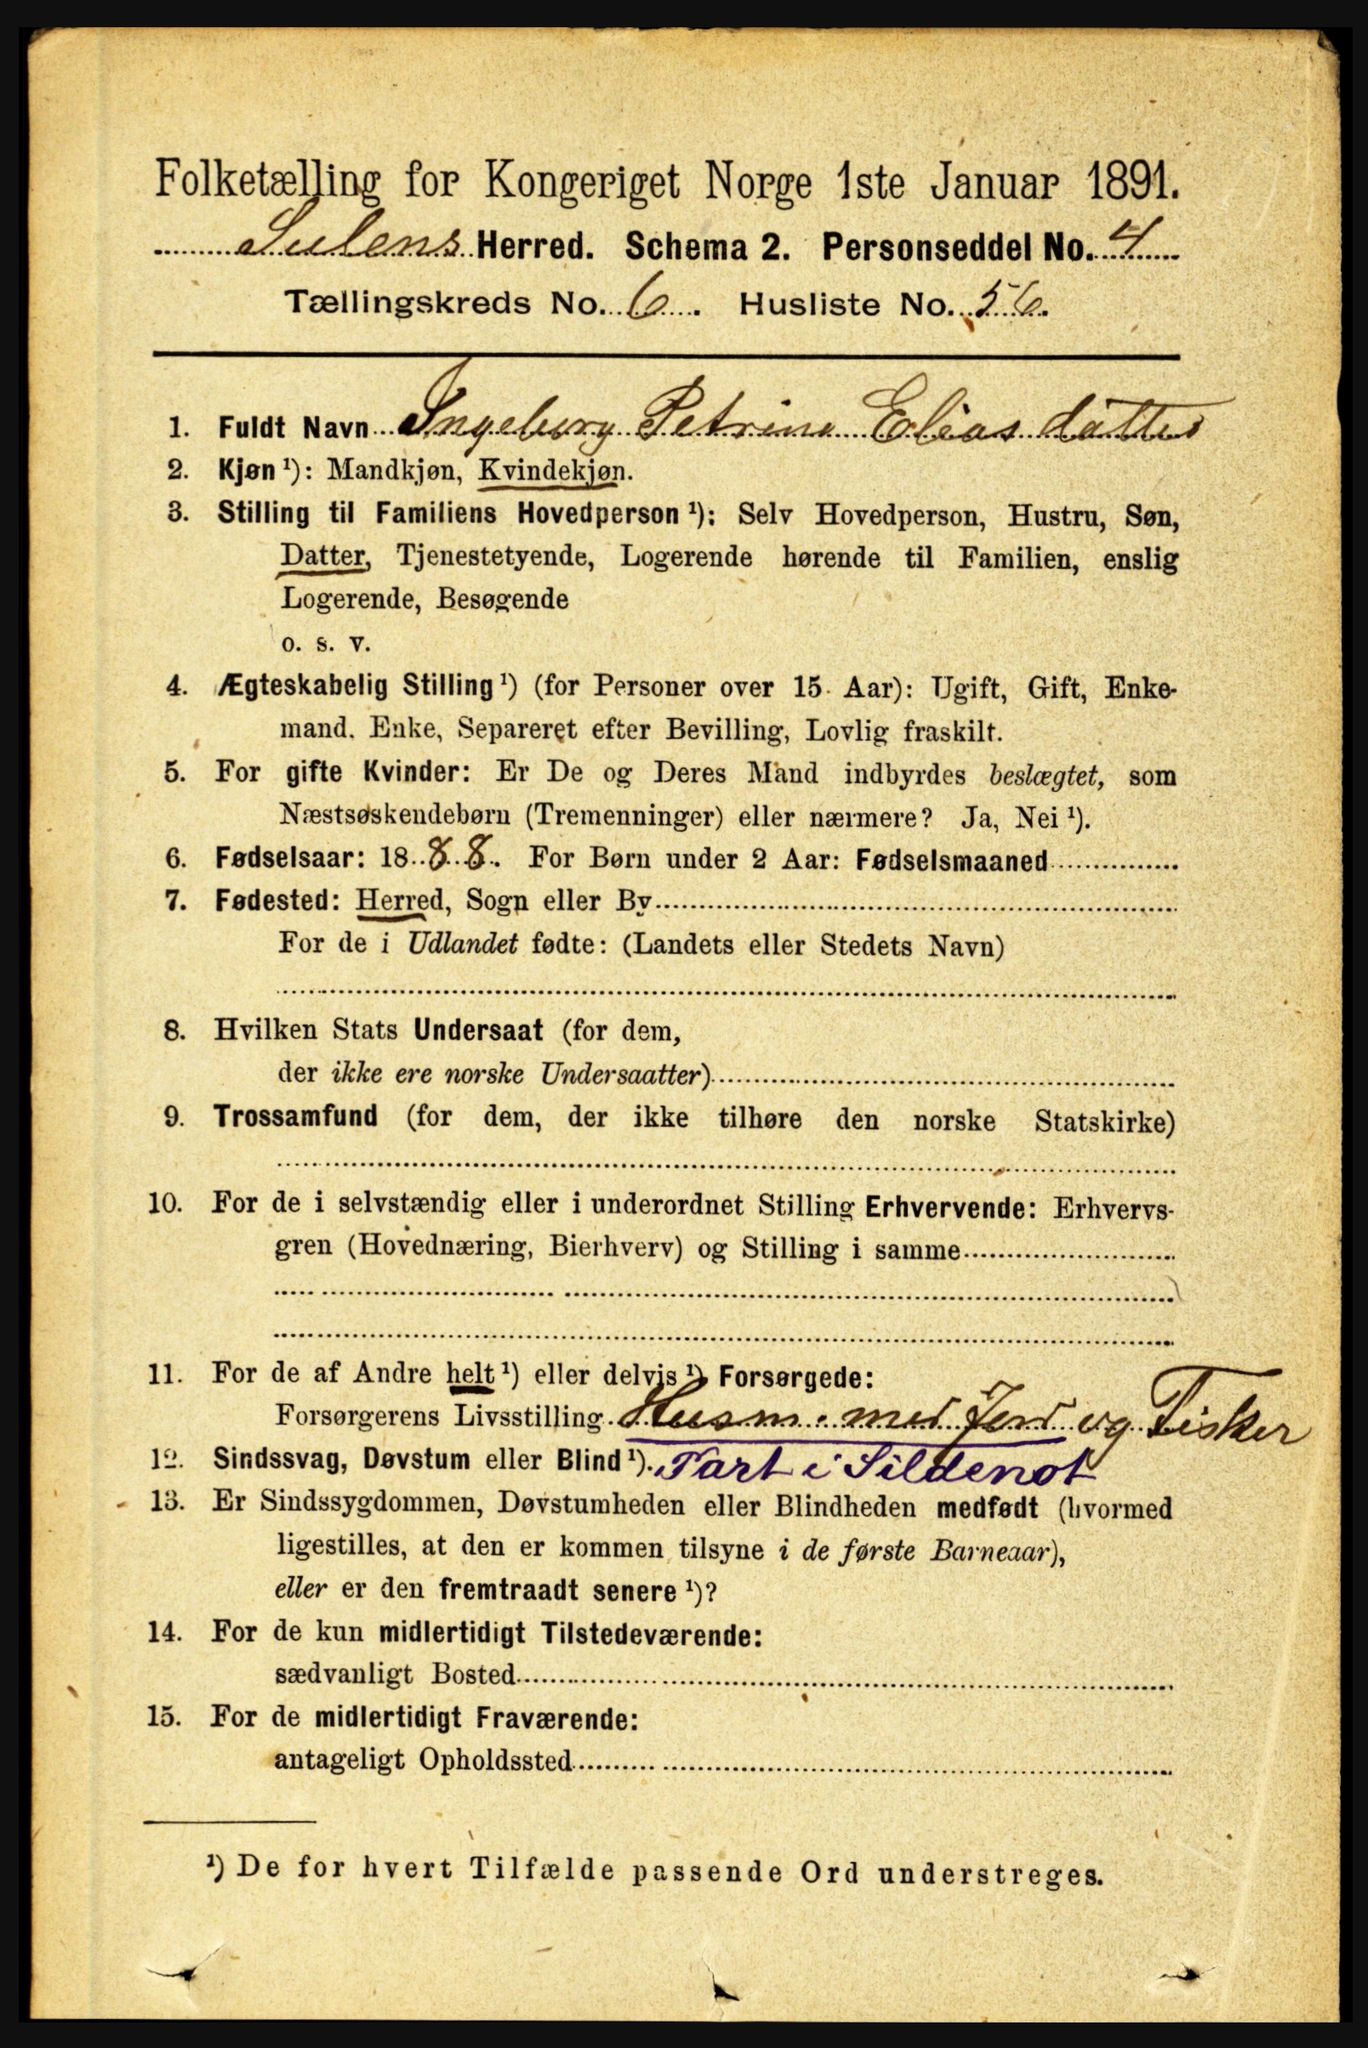 Folketælling for Kongeriget Norge 1ste Januar 1891.
Sulens Herred. Schema 2. Personseddel No. 4
Tællingskreds No. 6. Husliste No. 56.
1. Fuldt Navn Ingeborg Petrine Elias datter
2. Kjøn ¹): Mandkjøn, Kvindekjøn.
3. Stilling til Familiens Hovedperson ¹): Selv Hovedperson, Hustru, Søn,
Datter, Tjenestetyende, Logerende hørende til Familien, enslig
Logerende, Besøgende
o. s. v.
4. Ægteskabelig Stilling ¹) (for Personer over 15 Aar): Ugift, Gift, Enke-
mand. Enke, Separeret efter Bevilling, Lovlig fraskilt.
5. For gifte Kvinder: Er De og Deres Mand indbyrdes beslægtet, som
Næstsøskendebørn (Tremenninger) eller nærmere? Ja, Nei ¹).
6. Fødselsaar: 1888. For Børn under 2 Aar: Fødselsmaaned
7. Fødested: Herred, Sogn eller By
For de i Udlandet fødte: (Landets eller Stedets Navn)
8. Hvilken Stats Undersaat (for dem,
der ikke ere norske Undersaatter)
9. Trossamfund (for dem, der ikke tilhøre den norske Statskirke)
10. For de i selvstændig eller i underordnet Stilling Erhvervende: Erhvervs-
gren (Hovednæring, Bierhverv) og Stilling i samme
11. For de af Andre helt ¹) eller delvis ¹) Forsørgede:
Forsørgerens Livsstilling Husm. med Jord og Fisker
12. Sindssvag, Døvstum eller Blind ¹). Part i Sildenot
13. Er Sindssygdommen, Døvstumheden eller Blindheden medfødt (hvormed
ligestilles, at den er kommen tilsyne i de første Barneaar),
eller er den fremtraadt senere ¹)?
14. For de kun midlertidigt Tilstedeværende:
sædvanligt Bosted
15. For de midlertidigt Fraværende:
antageligt Opholdssted
¹) De for hvert Tilfælde passende Ord understreges.